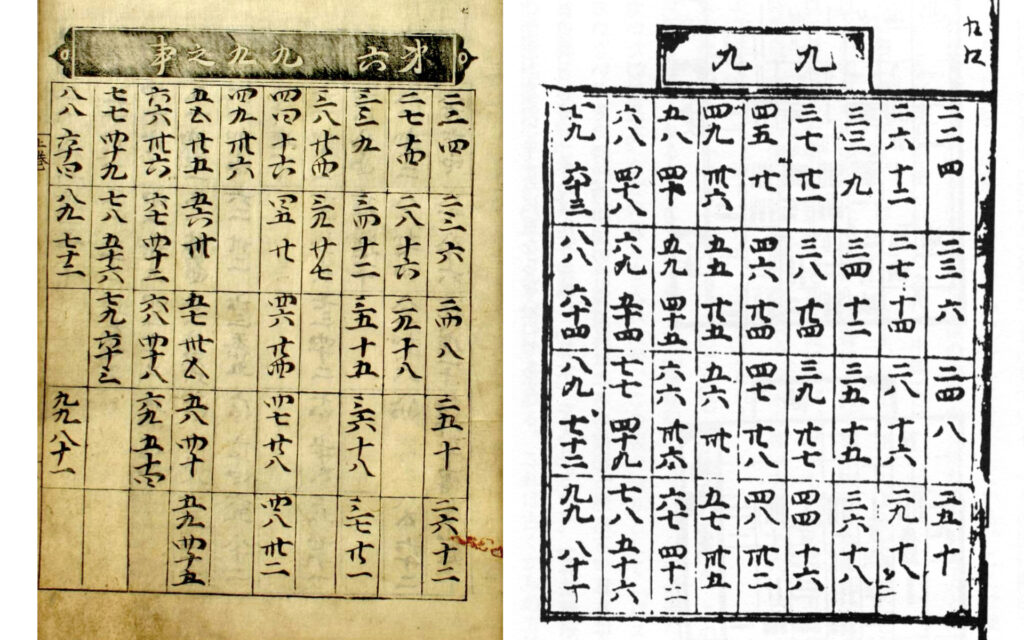 㐧六 九九之事
二二四 二三六 二四八 二五十 二六十二
二七十四 二八十六 二九十八
三三九 三四十二 三五十五 三六十八 三七廿一
三八廿四 三九廿七
四四十六 四五廿 四六廿四 四七廿八 四八卅二
四九卅六
五五廿五 五六卅 五七卅五 五八四十 五九四十五
六六卅六 六七四十二 六八四十八 六九五十四
七七四十九 七八五十六 七九六十三
八八六十四 八九七十二 九九八十一
九九
二二四 二三六 二四八 二五十
二六十二 二七十四 二八十六 二九十八
三三九 三四十二 三五十五 三六十八
三七廿一 三八廿四 三九廿七 四四十六
四五廿 四六廿四 四七廿八 四八卅二
四九卅六 五五廿五 五六卅 五七卅五
五八四十 五九四十五 六六卅六 六七四十二
六八四十八 六九五十四 七七四十九 七八五十六
七九六十三 八八六十四 八九七十二 九九八十一